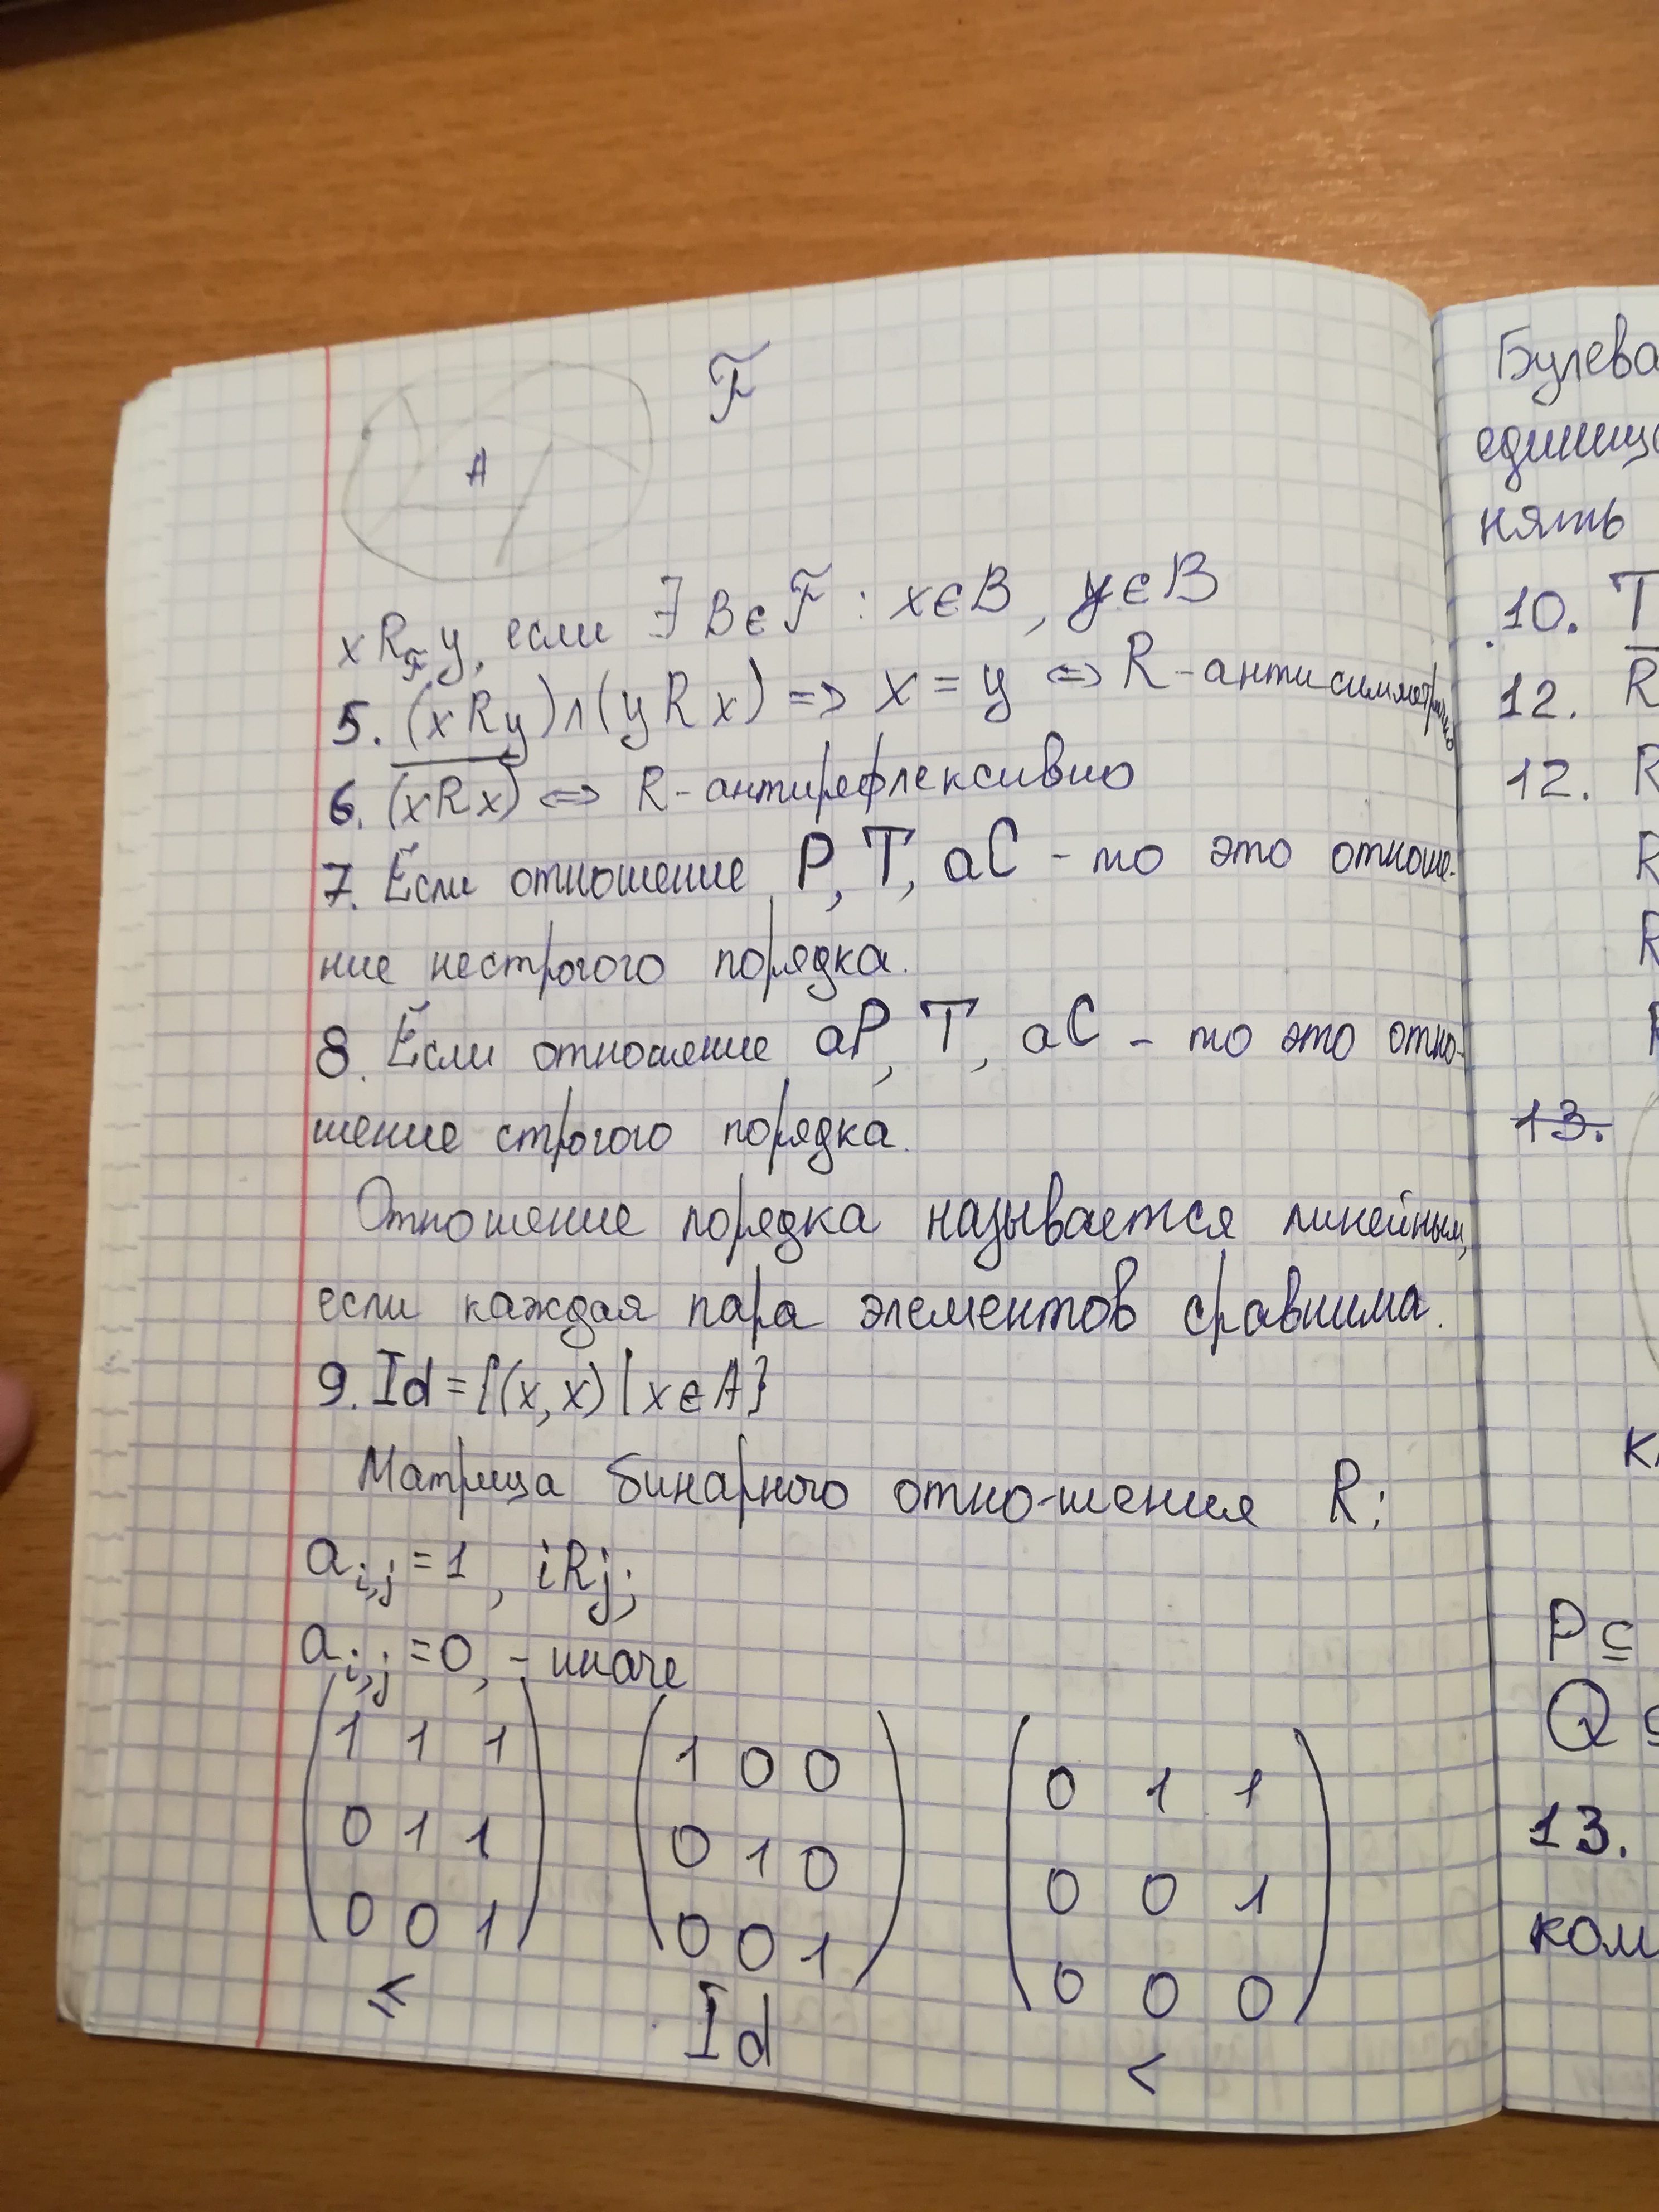 ℱ
A
x R_ℱ y, если ∃ B ∈ ℱ : x ∈ B, y ∈ B
5. (xRy) ∧ (yRx) => x = y <=> R - антисимметрично
6. (x̅R̅x̅) <=> R - антирефлексивно
7. Если отношение Р, Т, аС - то это отноше-
ние нестрогого порядка.
8. Если отношение аР, Т, аС - то это отно-
шение строгого порядка.
Отношение порядка называется линейным,
если каждая пара элементов сравнима.
9. Id = {(x, x) | x ∈ A}
Матрица бинарного отно-шения R:
a_{i,j} = 1, iRj;
a_{i,j} = 0, - иначе
1 1 1
0 1 1
0 0 1
⩽
1 0 0
0 1 0
0 0 1
Id
0 1 1
0 0 1
0 0 0
<
Булева
единиц
нять
10. Т
12. R
12. R
R
R
13.
P ⊆
Q
13.
ком